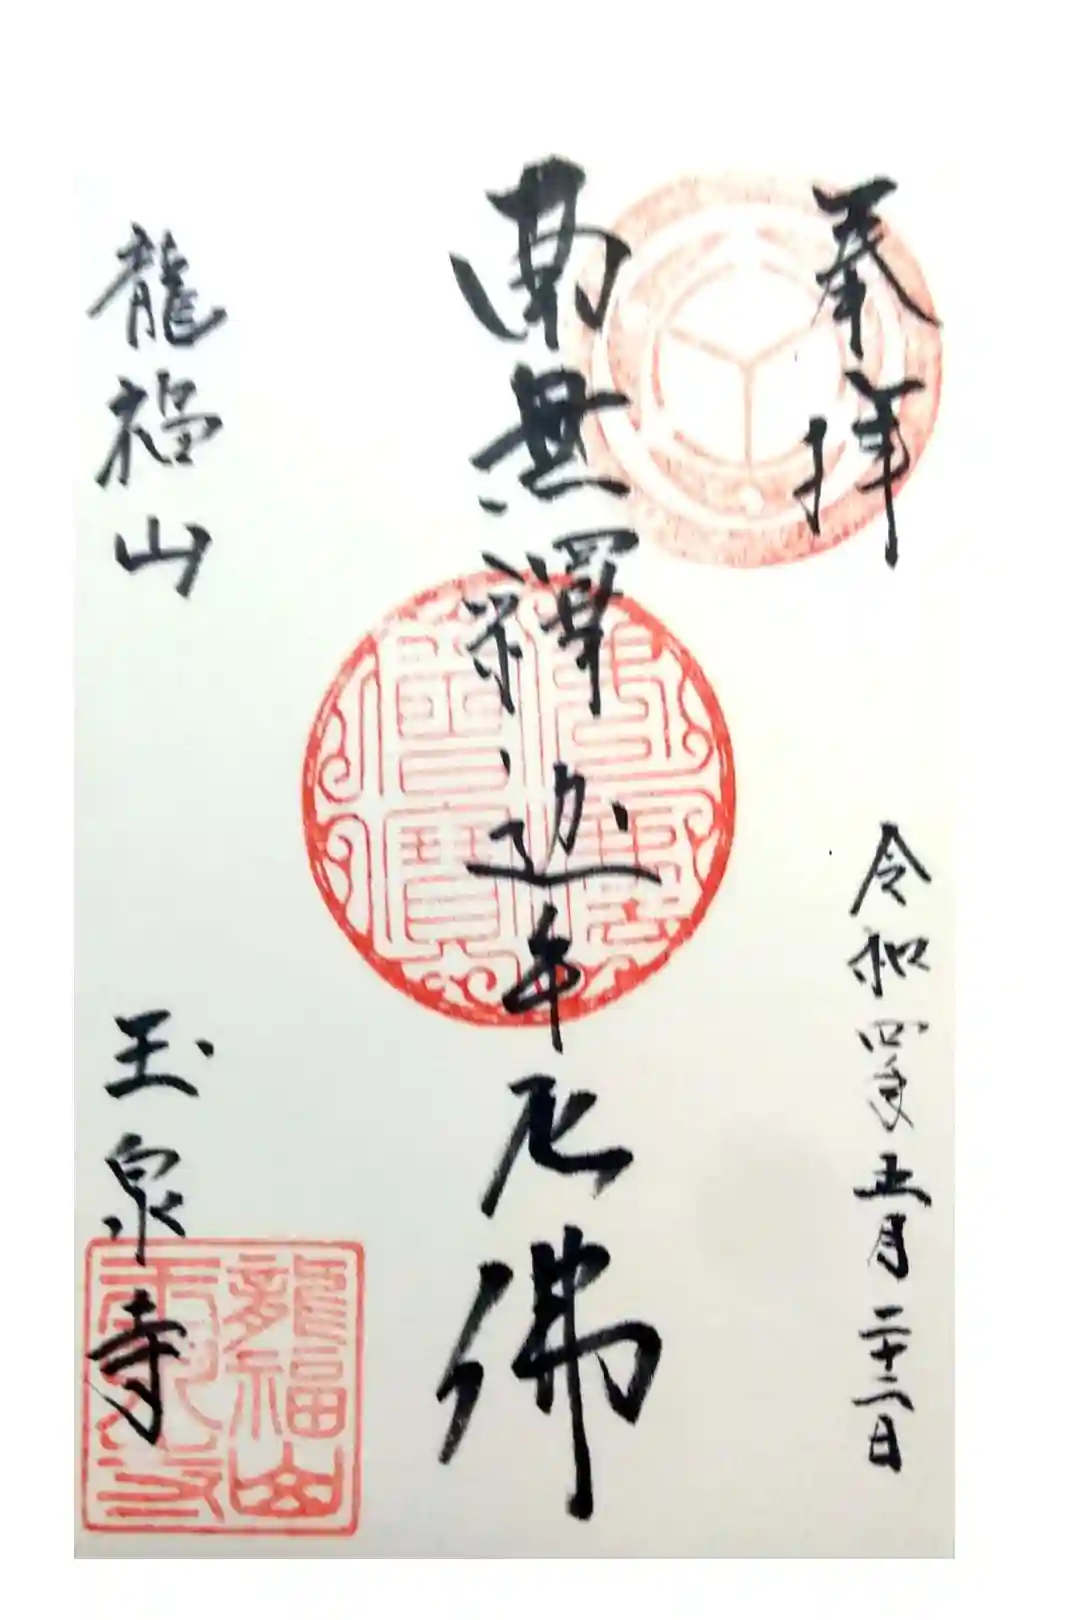 奉拝
令和四年五月二十二日
南無釋迦牟尼佛
佛法僧寶
龍福山
玉泉寺
龍福山
玉泉寺